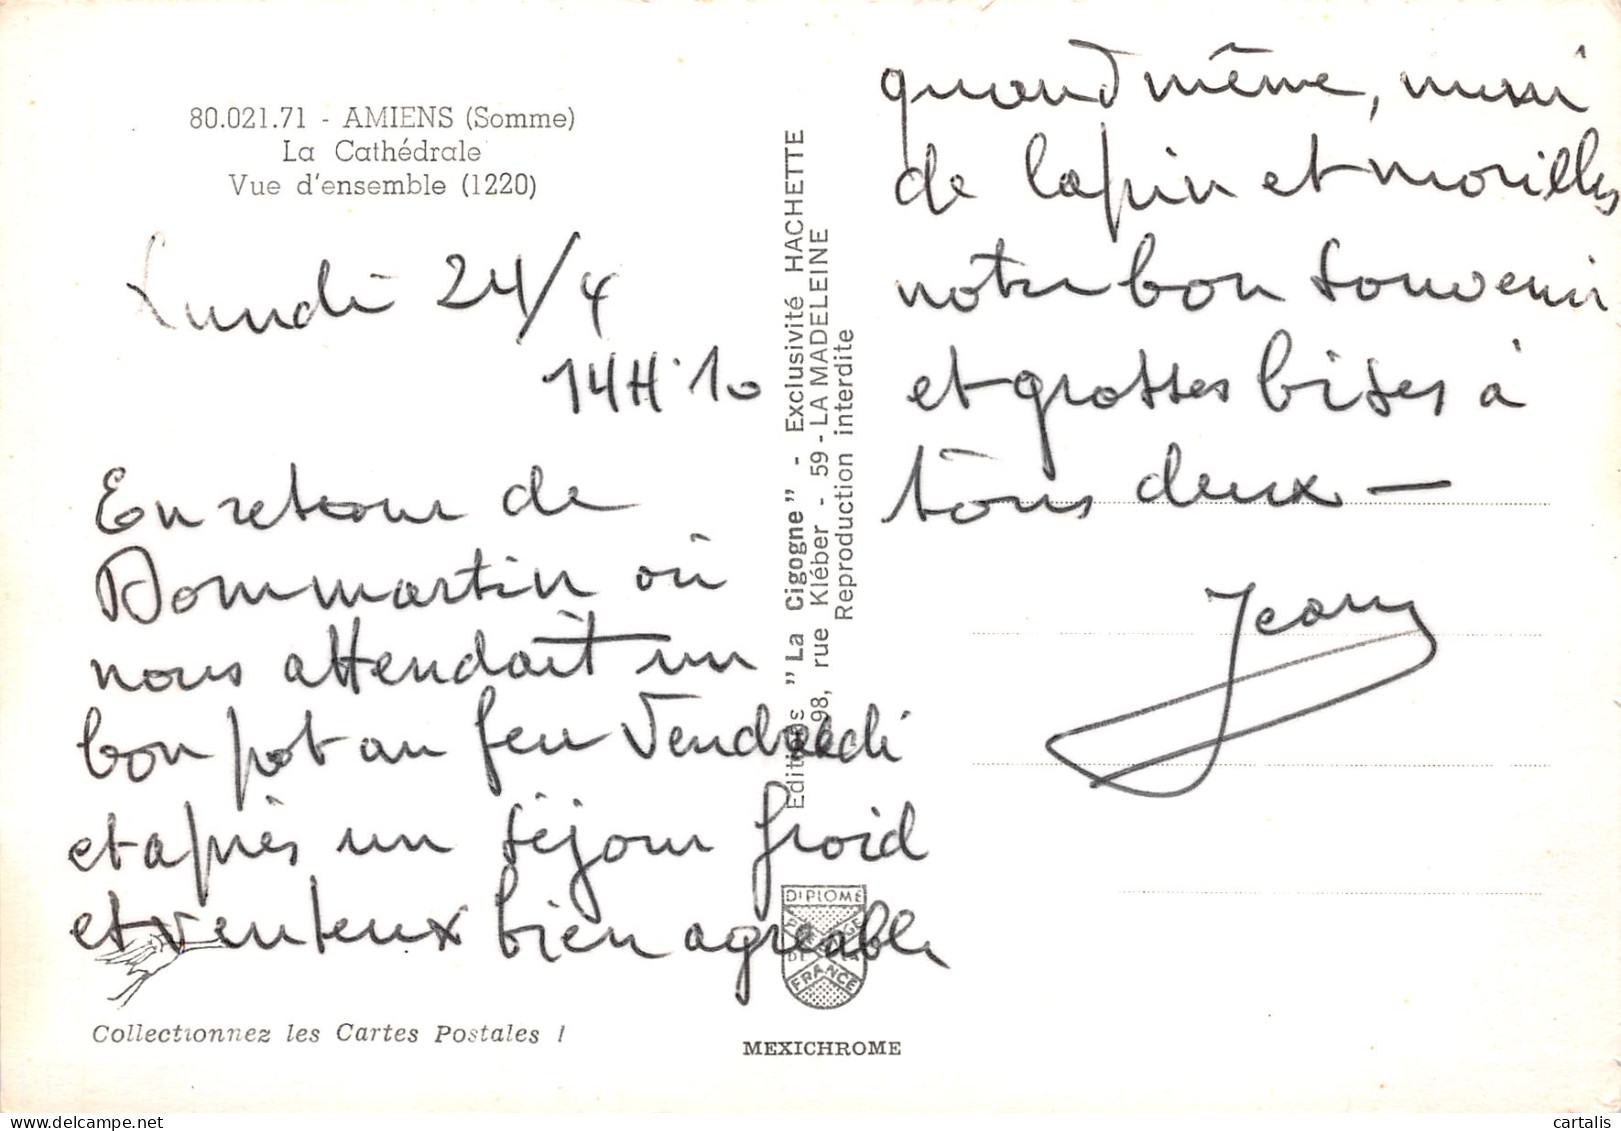 80.021.71 - AMIENS (Somme)
La Cathédrale
Vue d'ensemble (1220)
Lundi 24/4
14H10
En retour de
Dommartin où
nous attendait un
bon pot au feu Vendredi
et après un séjour froid
et venteux bien agréable
Collectionnez les Cartes Postales !
Editions "La Cigogne" - Exclusivité HACHETTE
98, rue Kléber - 59 - LA MADELEINE
Reproduction interdite
DIPLOME
DE LA
FRANCE
MEXICHROME
quand même, muni
de lapin et morilles
notre bon souvenir
et grosses bises à
tous deux —
Jean
cartalis